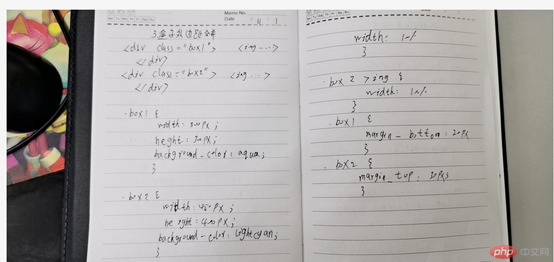 Memo No.
Date 4 1
3 盒子
<div class="box1"> <img ...>
</div>
<div class="box2"> <img ...>
</div>
.box1 {
width: 300px;
height: 300px;
background-color: aqua;
}
.box2 {
width: 450px;
height: 400px;
background-color: lightcyan;
}
width:
}
.box2 > img {
width:
}
.box1 {
margin-bottom: 20px
}
.box2 {
margin_top: 20px;
}
php 中文网